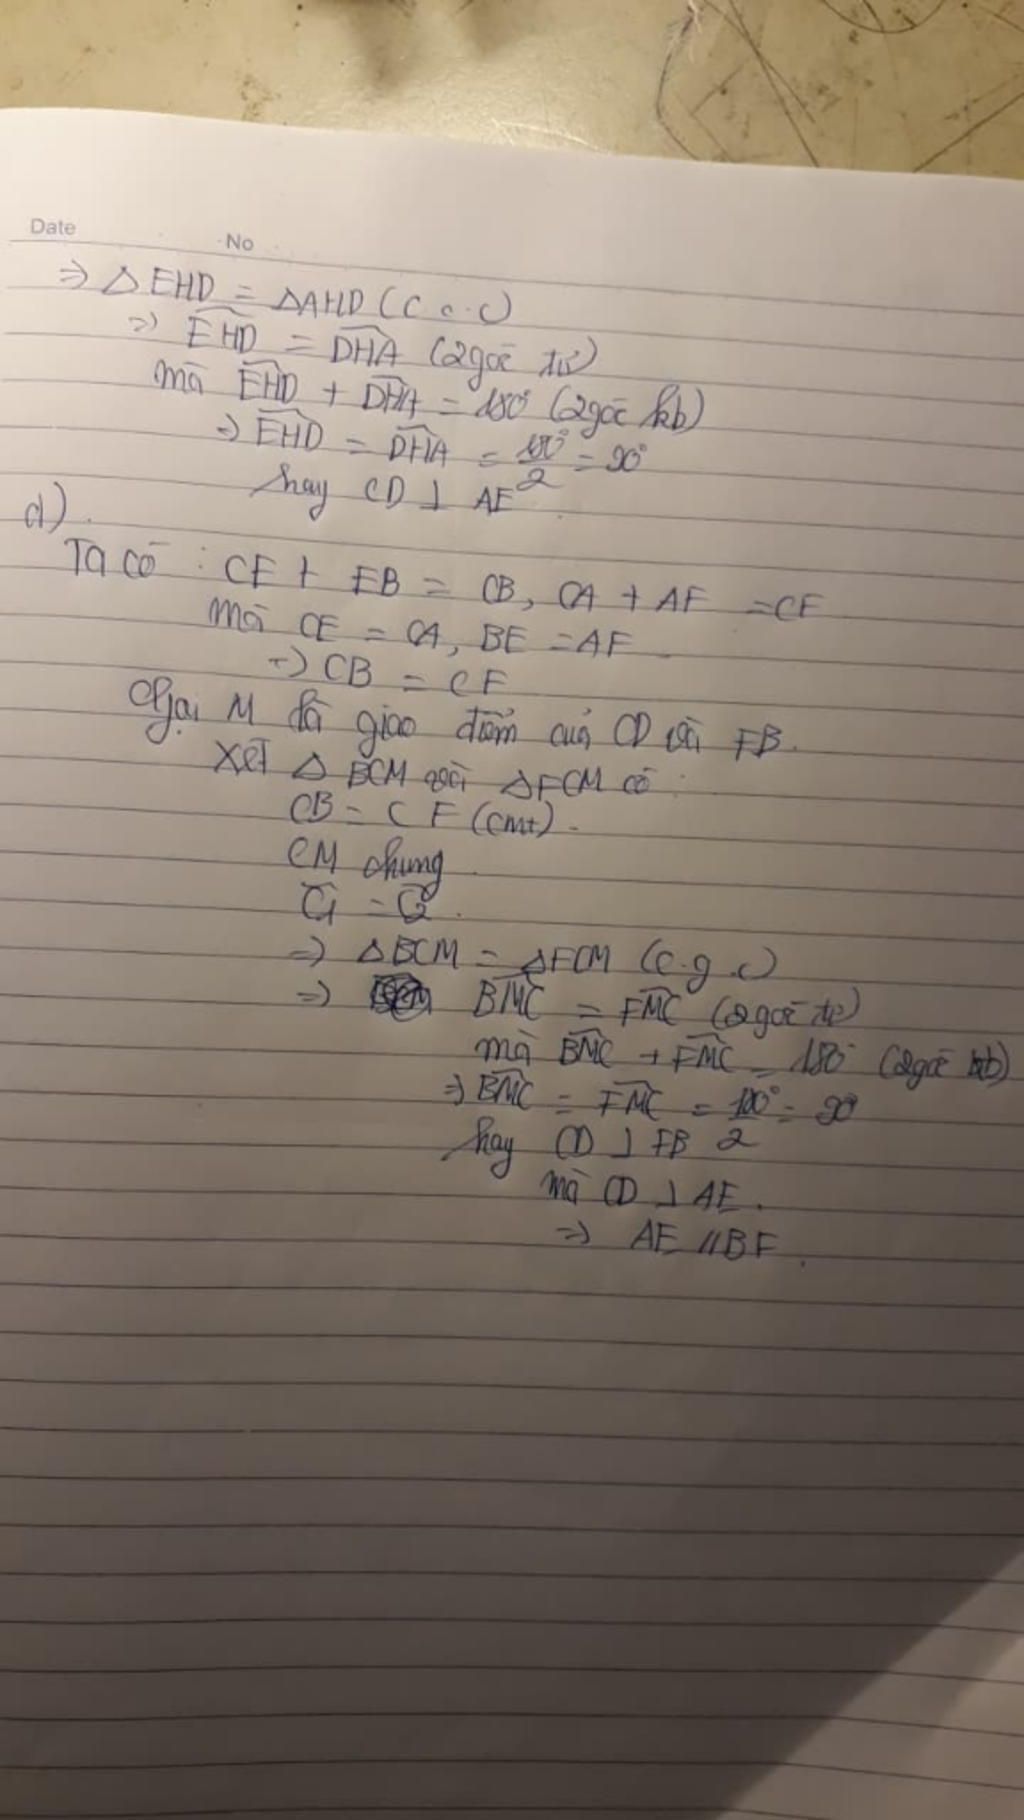 Date
No
=> △EHD = △AHD (c.c.c)
=> \widehat{EHD} = \widehat{DHA} (2 góc tư)
mà \widehat{EHD} + \widehat{DHA} = 180° (2 góc kb)
=> \widehat{EHD} = \widehat{DHA} = \frac{180°}{2} = 90°
hay CD ⊥ AE
d)
Ta có : CE + EB = CB, CA + AF = CF
mà CE = CA, BE = AF
=> CB = CF
Gọi M là giao điểm của CD và FB.
Xét △ BCM và △FCM có :
CB = CF (cmt)
CM chung
\widehat{C1} = \widehat{C2}
=> △BCM = △FCM (c.g.c)
=> \widehat{BMC} = \widehat{FMC} (2 góc tư)
mà \widehat{BMC} + \widehat{FMC} = 180° (2 góc kb)
=> \widehat{BMC} = \widehat{FMC} = \frac{180°}{2} = 90°
hay CD ⊥ FB
mà CD ⊥ AE.
=> AE // BF.